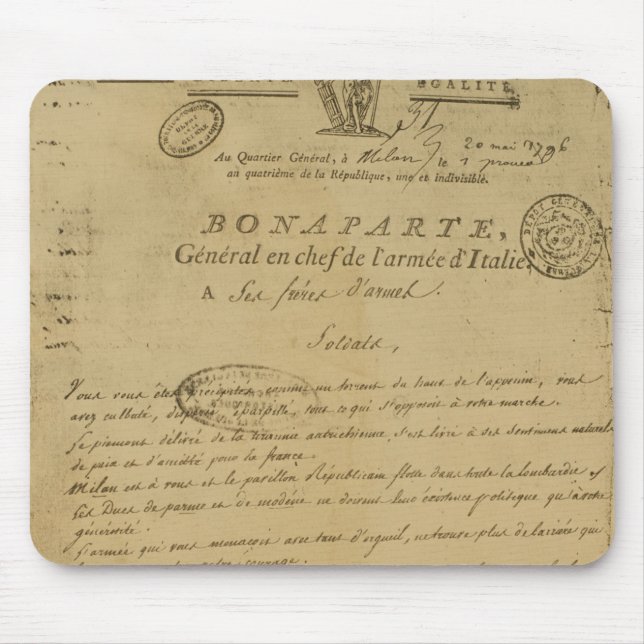 ÉGALITÉ
20 mai 1796
Au Quartier Général, à Milan, le 1 prairial
au quatrième de la République, une et indivisible.
BONAPARTE,
Général en chef de l'armée d'Italie,
A Ses frères d'armes.
Soldats,
Vous vous êtes précipités, comme un torrent du haut de l'apennin, vous
avez culbuté, dispersé, éparpillé, tout ce qui s'opposoit à votre marche.
Le piemont délivré de la tirannie autrichienne, s'est livré à ses sentimens naturels
de paix et d'amitié pour la france.
Milan est à vous et le pavillon Républicain flotte dans toute la lombardie
Les Ducs de parme et de modène ne doivent leur existence politique qu'à votre
générosité.
L'armée qui vous menaçoit avec tant d'orgueil, ne trouve plus de barrière qui
courage.